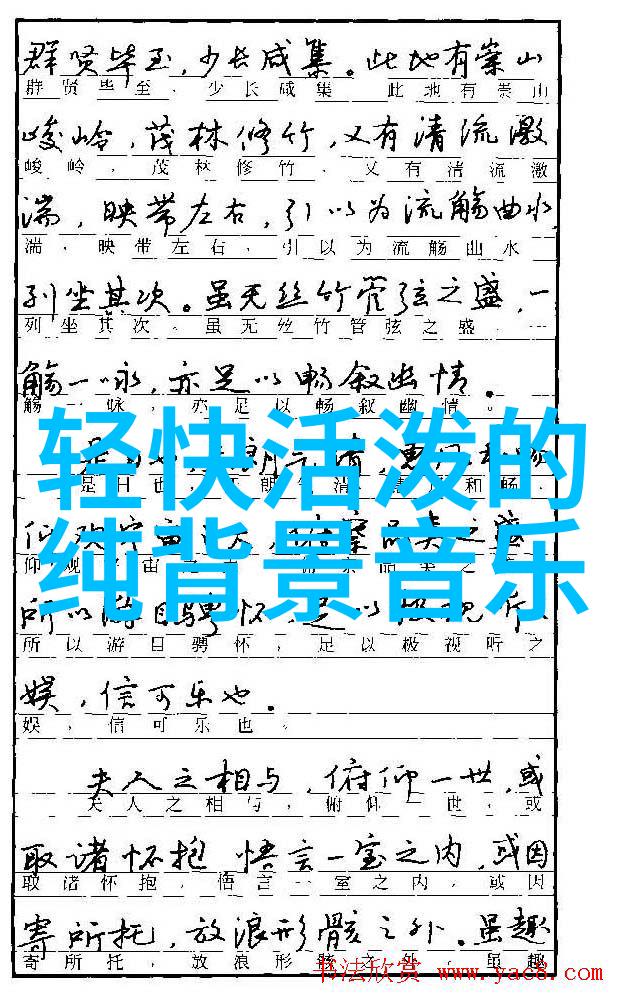 群贤毕至，少长咸集。此地有崇山
群贤毕至，少长咸集。此地有崇山
峻岭，茂林修竹，又有清流激
峻岭，茂林修竹，又有清流激
湍，映带左右，引以为流觞曲水，
湍，映带左右，引以为流觞曲水
列坐其次。虽无丝竹管弦之盛，一
列坐其次。虽无丝竹管弦之盛，一
觞一咏，亦足以畅叙幽情。
觞一咏，亦足以畅叙幽情。
轻快活泼的
是日也，朗清，和畅，
纯背景音乐
仰宙品类之盛
仰观宇宙品类之
所以游目骋怀，足以极视听
所以游目骋怀，足以极视听之
娱，信可乐也。
娱，信可乐也。
夫人之相与，俯仰一世，或
夫人之相与，俯仰一世，或
取诸怀抱 悟言一室之内，或因
取诸怀抱，悟言一室之内，或因
寄所托，放浪形骸之外。虽趣
寄所托，放浪形骸之外。虽趣
书法欣赏 www.yac8.com